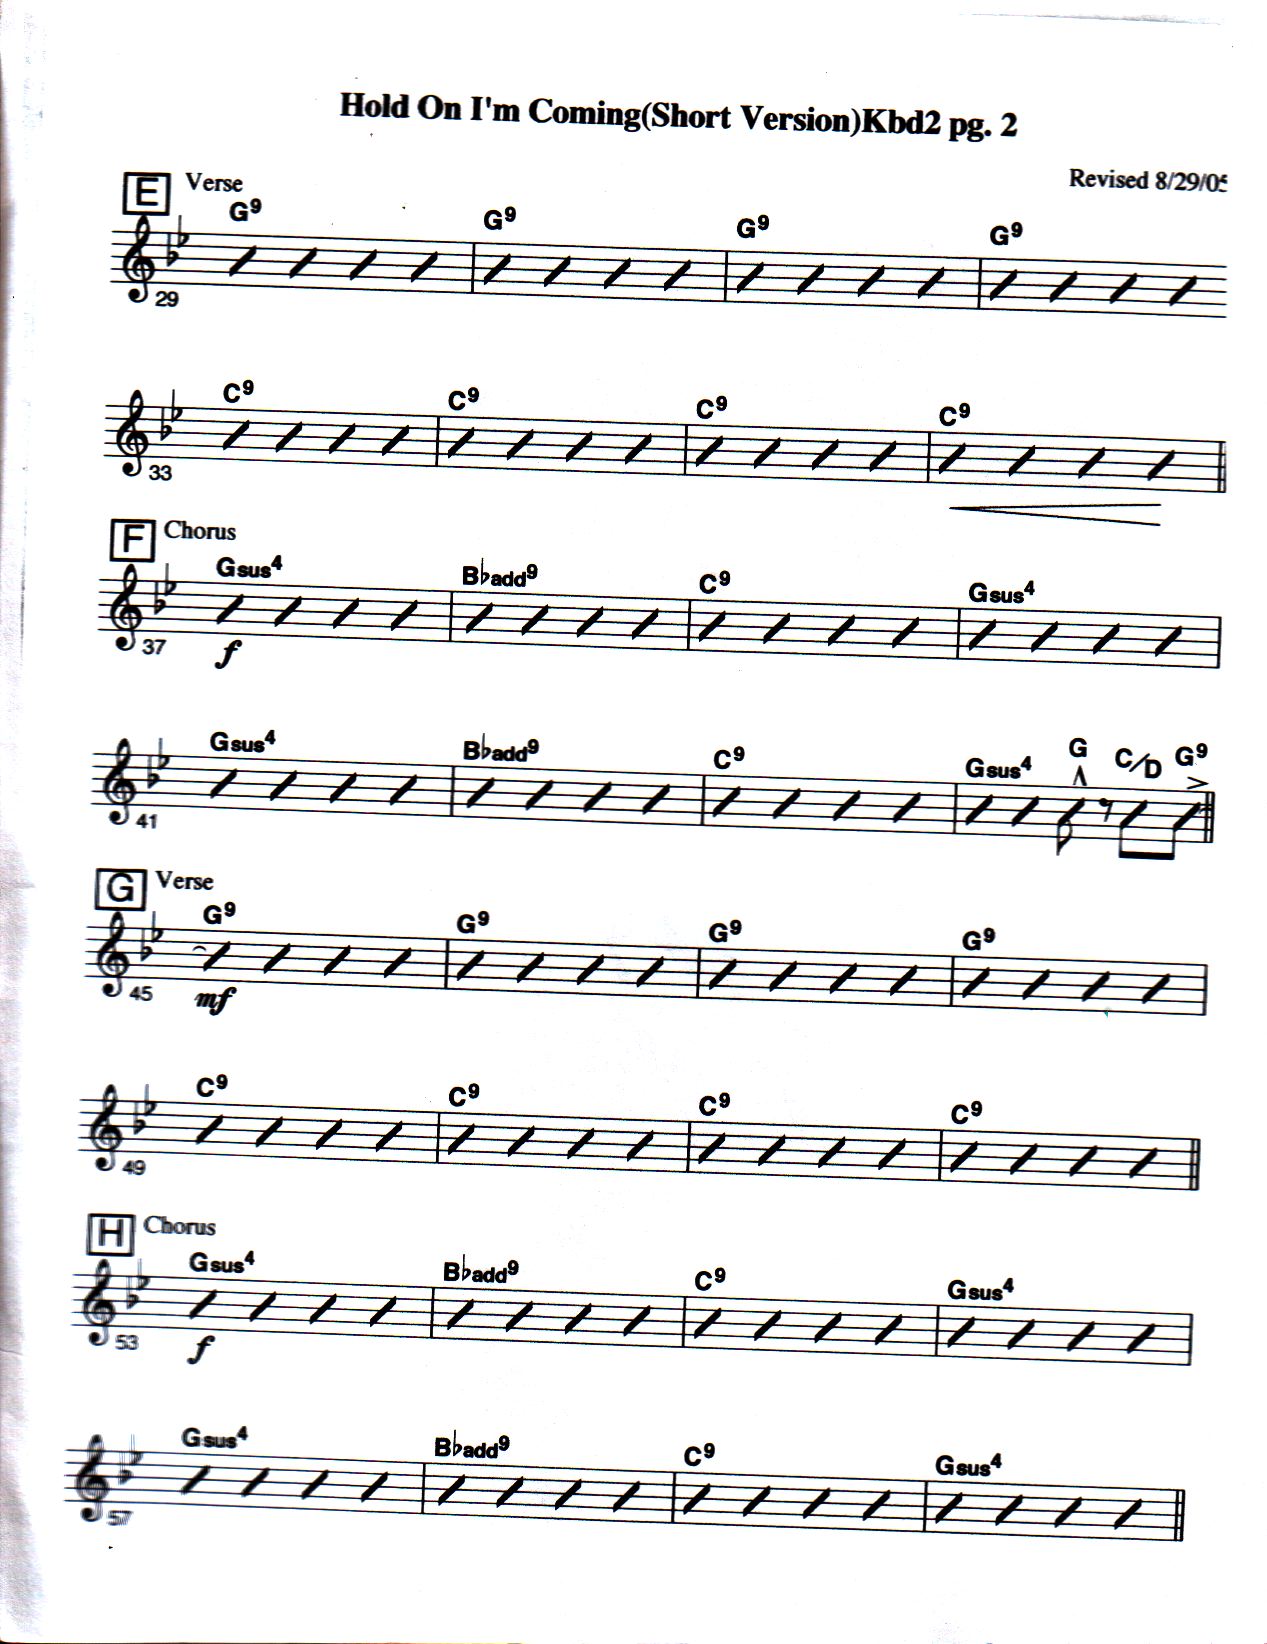 Hold On I'm Coming(Short Version)Kbd2 pg. 2
Revised 8/29/05
E Verse
G9 G9 G9 G9
29
C9 C9 C9 C9
33
F Chorus
Gsus4 B♭add9 C9 Gsus4
37 f
Gsus4 B♭add9 C9 Gsus4 G C/D G9
41
G Verse
G9 G9 G9 G9
45 mf
C9 C9 C9 C9
49
H Chorus
Gsus4 B♭add9 C9 Gsus4
53 f
Gsus4 B♭add9 C9 Gsus4
57